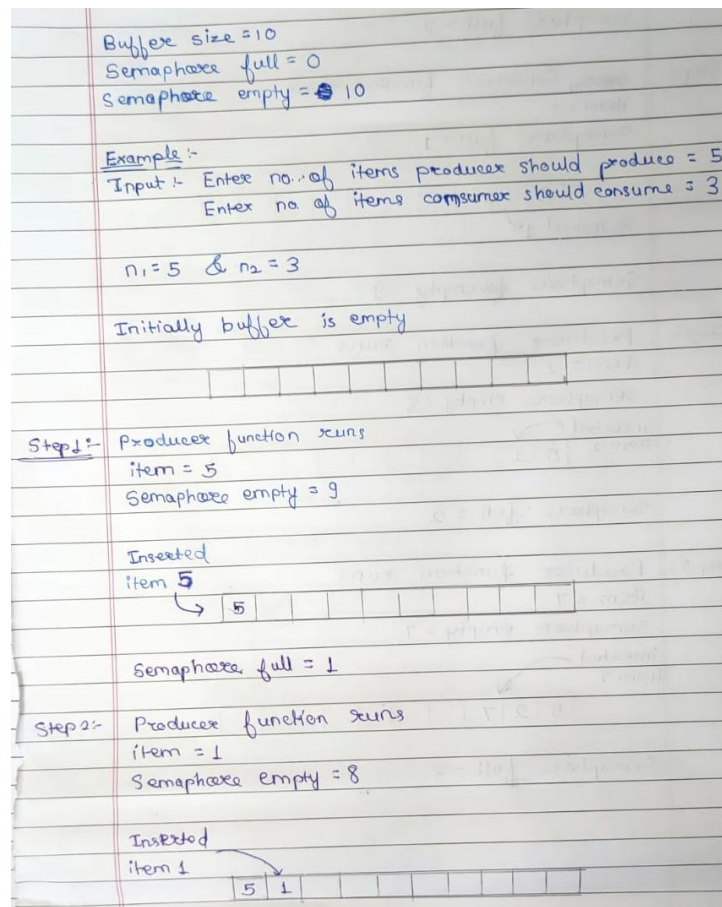 Buffer size = 10
Semaphore full = 0
Semaphore empty = 10
Example :-
Input :- Enter no. of items producer should produce = 5
Enter no of items comsumer should consume = 3
n1 = 5 & n2 = 3
Initially buffer is empty
Step1:- Producer function runs
item = 5
Semaphore empty = 9
Inserted
item 5
5
Semaphore full = 1
Step2:- Producer function runs
item = 1
Semaphore empty = 8
Inserted
item 1
5 1